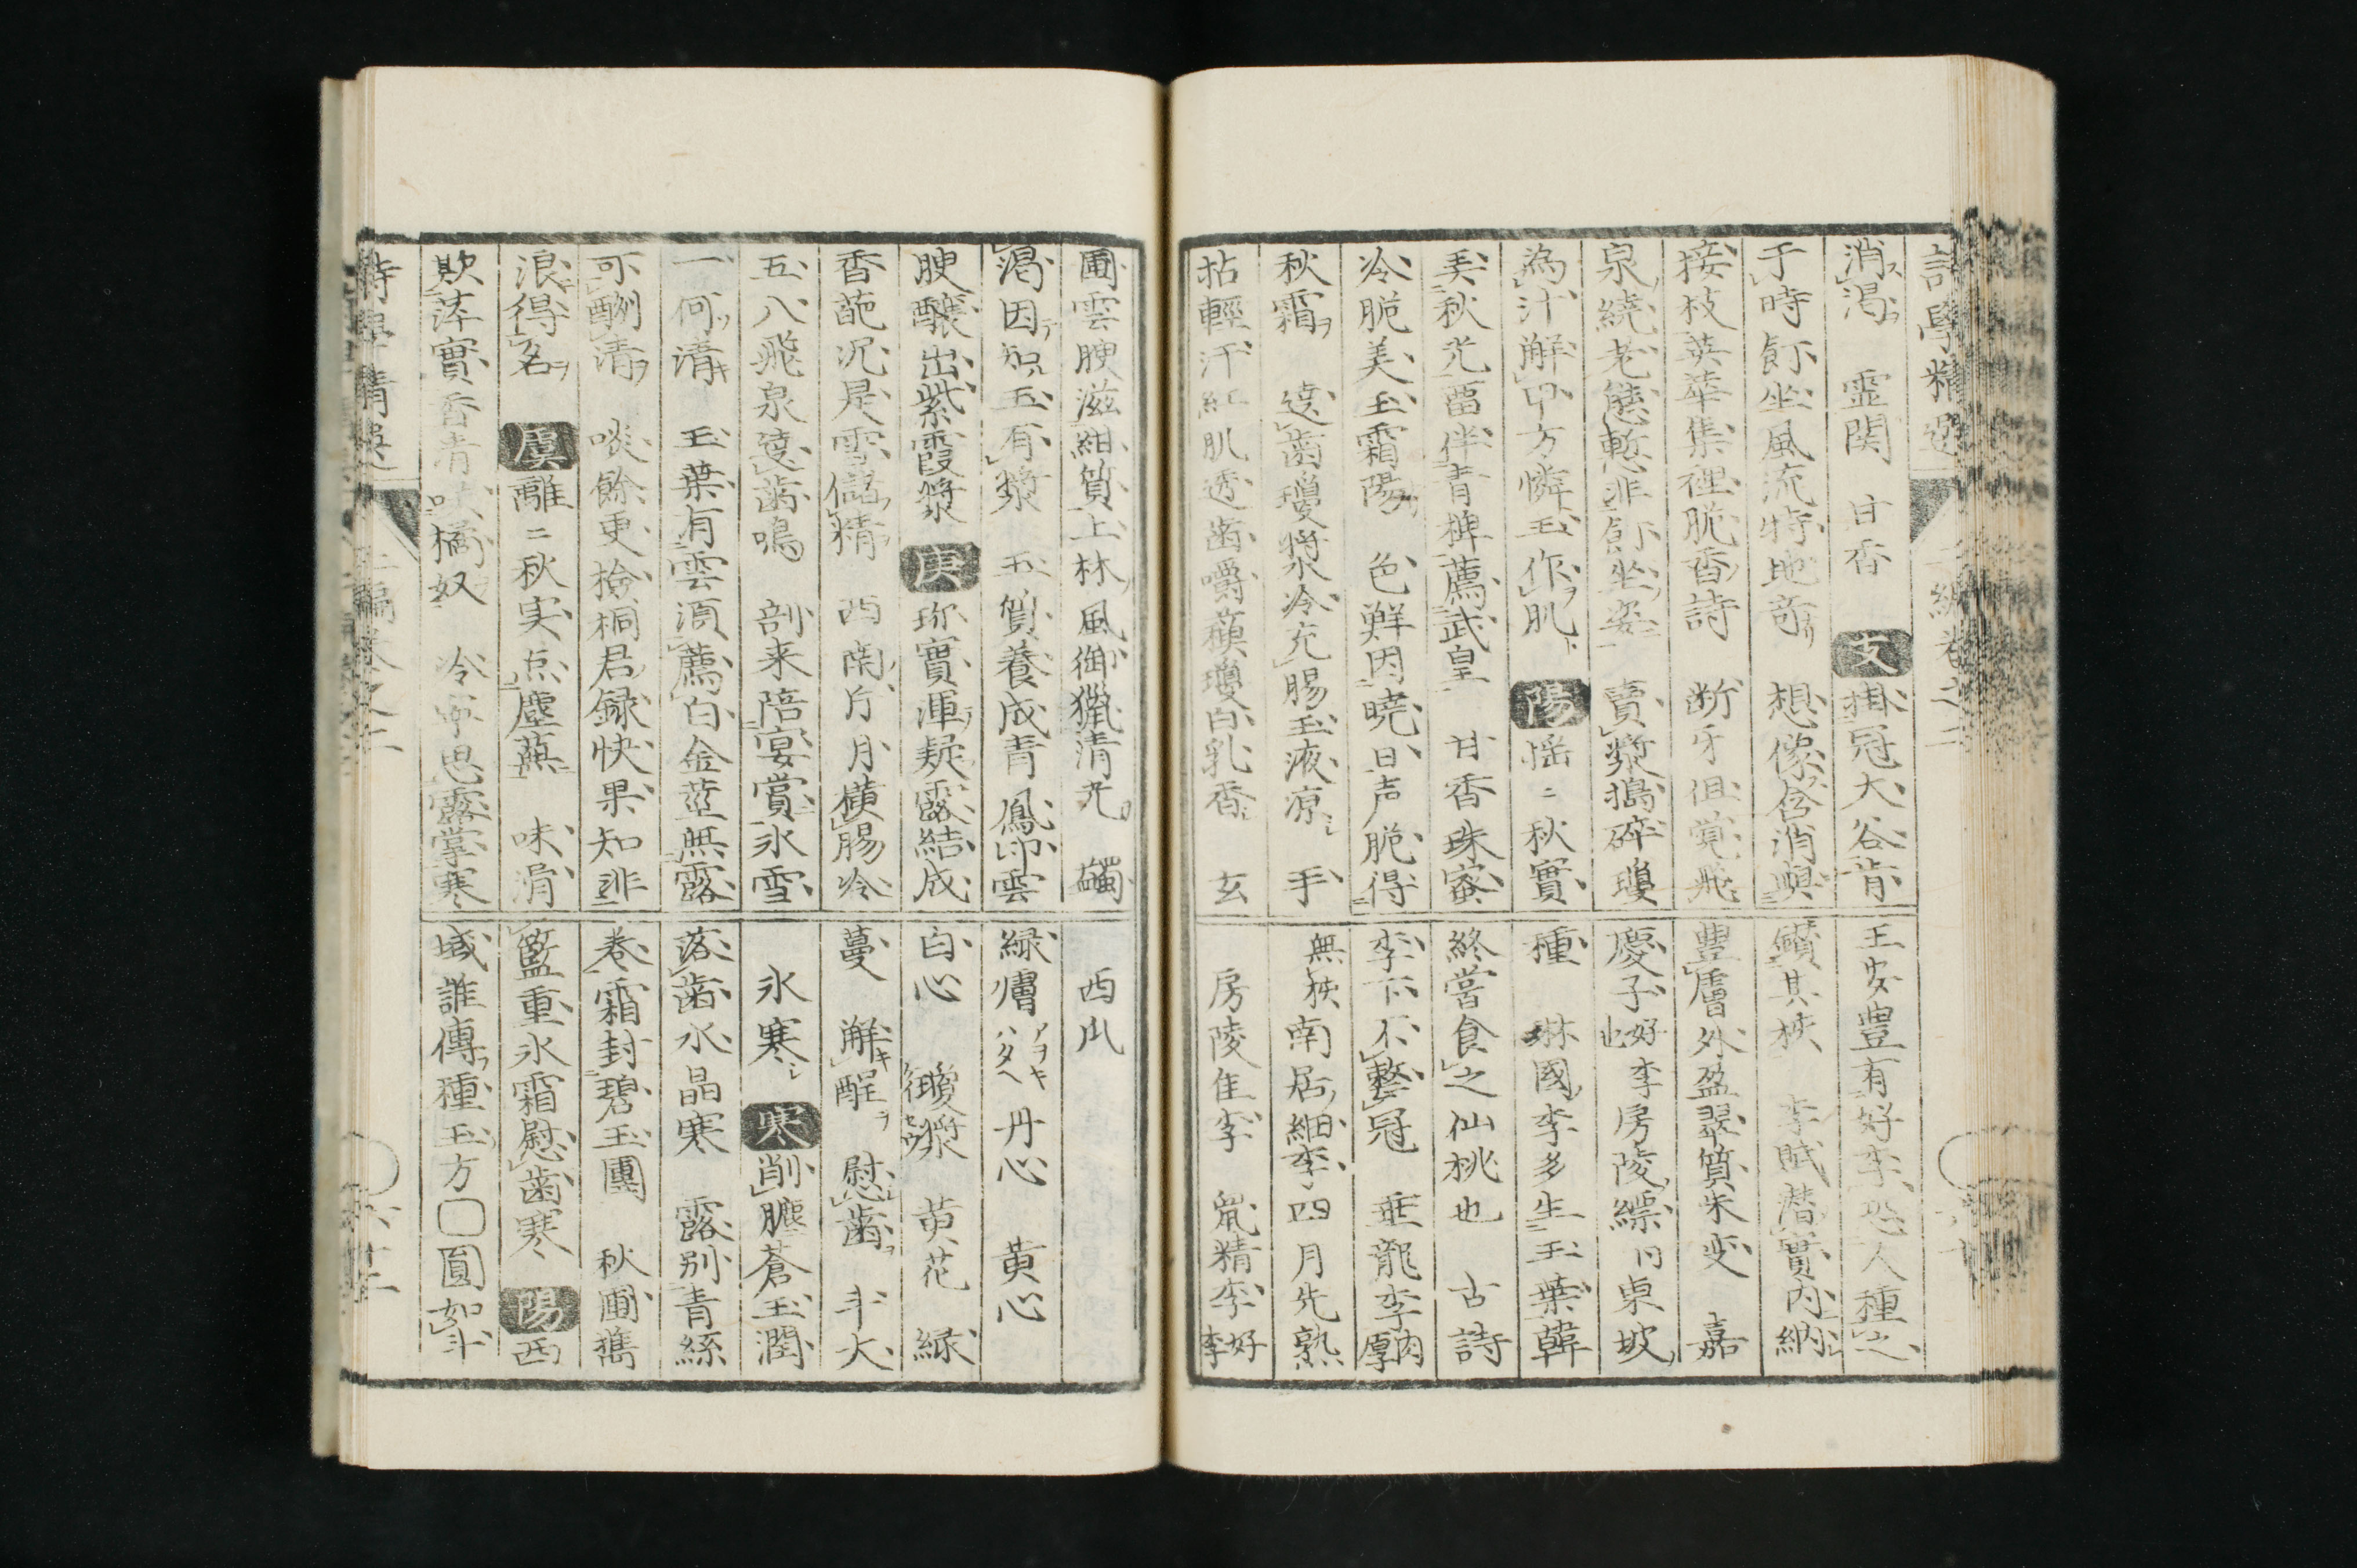 詩學精選 二編卷之二
消渇 霊関 甘香 支 掛冠大谷肯
于時飣坐風流特地奇 想像含消與
接枝英華集裡脆香詩 断牙但覚飛
泉繞老饕慙非飣坐姿 賣漿搗碎瓊
為汁解甲方憐玉作肌 陽 揺〻秋實
美秋光畱伴青椑薦武皇 甘香珠蜜
冷脆美玉霜陽 色鮮因暁日声脆得
秋霜 遶歯瓊漿冷充腸玉液凉 手
拈輕汗紅肌透歯嚼蘋瓊白乳香 玄
圃雲腴滋紺質上林風御獵清光 蠲
渇因知玉有漿 玉質養成青鳳卵雲
腴釀出紫霞漿 庚 珎實渾疑露結成
香葩况是雪儲精 西南片月横腸冷
五八飛泉遶歯鳴 剖来陪宴賞氷雪
一何清 玉葉有雲須薦白金莖無露
可酬清 啖餘更撿桐君録快果知非
浪得名 虞 離〻秋実点塵蕪 味涓
欺萍實香青
橘奴 冷
思露掌寒
王安豊有好李恐人種之
鑚其核 李賦潜實内納
豊膚外盈翠質朱変 嘉
慶子好李也 房陵縹 円桌坡
種 琳國李多生玉葉韓
終嘗食之仙桃也 古詩
李下不整冠 垂龍李肉厚
無核 南居細李四月先熟
房陵隹李 鼠精李好李
西瓜
緑膚アヲキハダヘ 丹心 黄心
白心 瓊漿 黄花 緑
蔓 解酲 慰歯 斗大
氷寒 寒 削臚蒼玉潤
落歯水晶寒 露別青絲
巻霜封碧玉團 秋圃攜
籃重氷霜慰歯寒 陽 西
域誰傳種玉方 圓如斗
詩學精選 二編卷之二